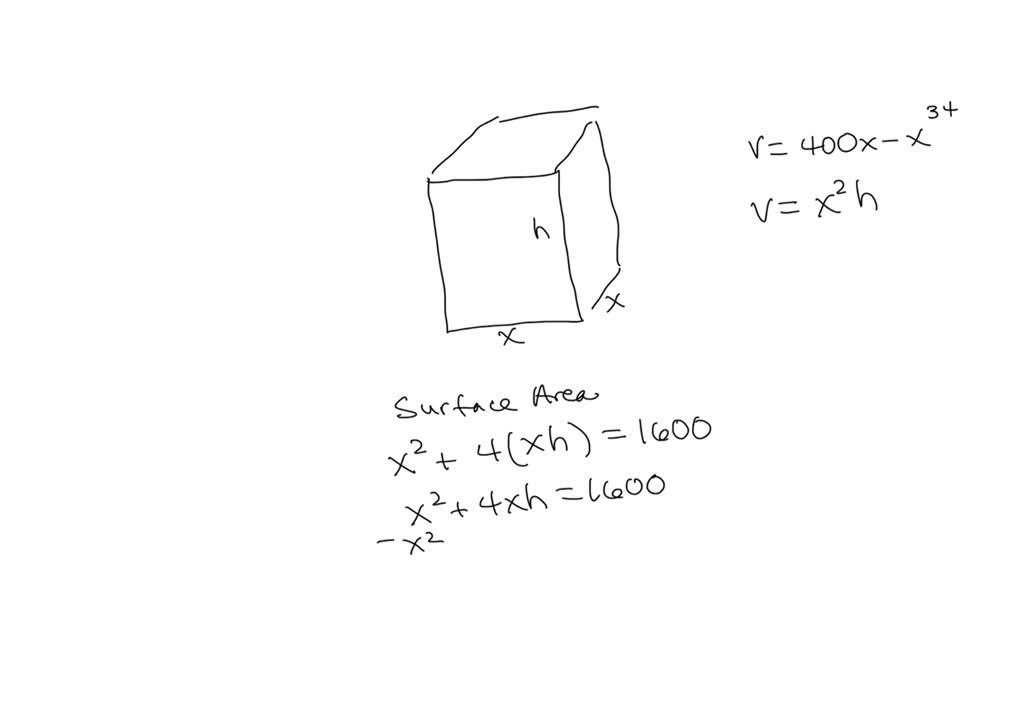 V = 400x - x^34
V = x²h
h
x
x
Surface Area
x² + 4(xh) = 1600
x² + 4xh = 1600
-x²